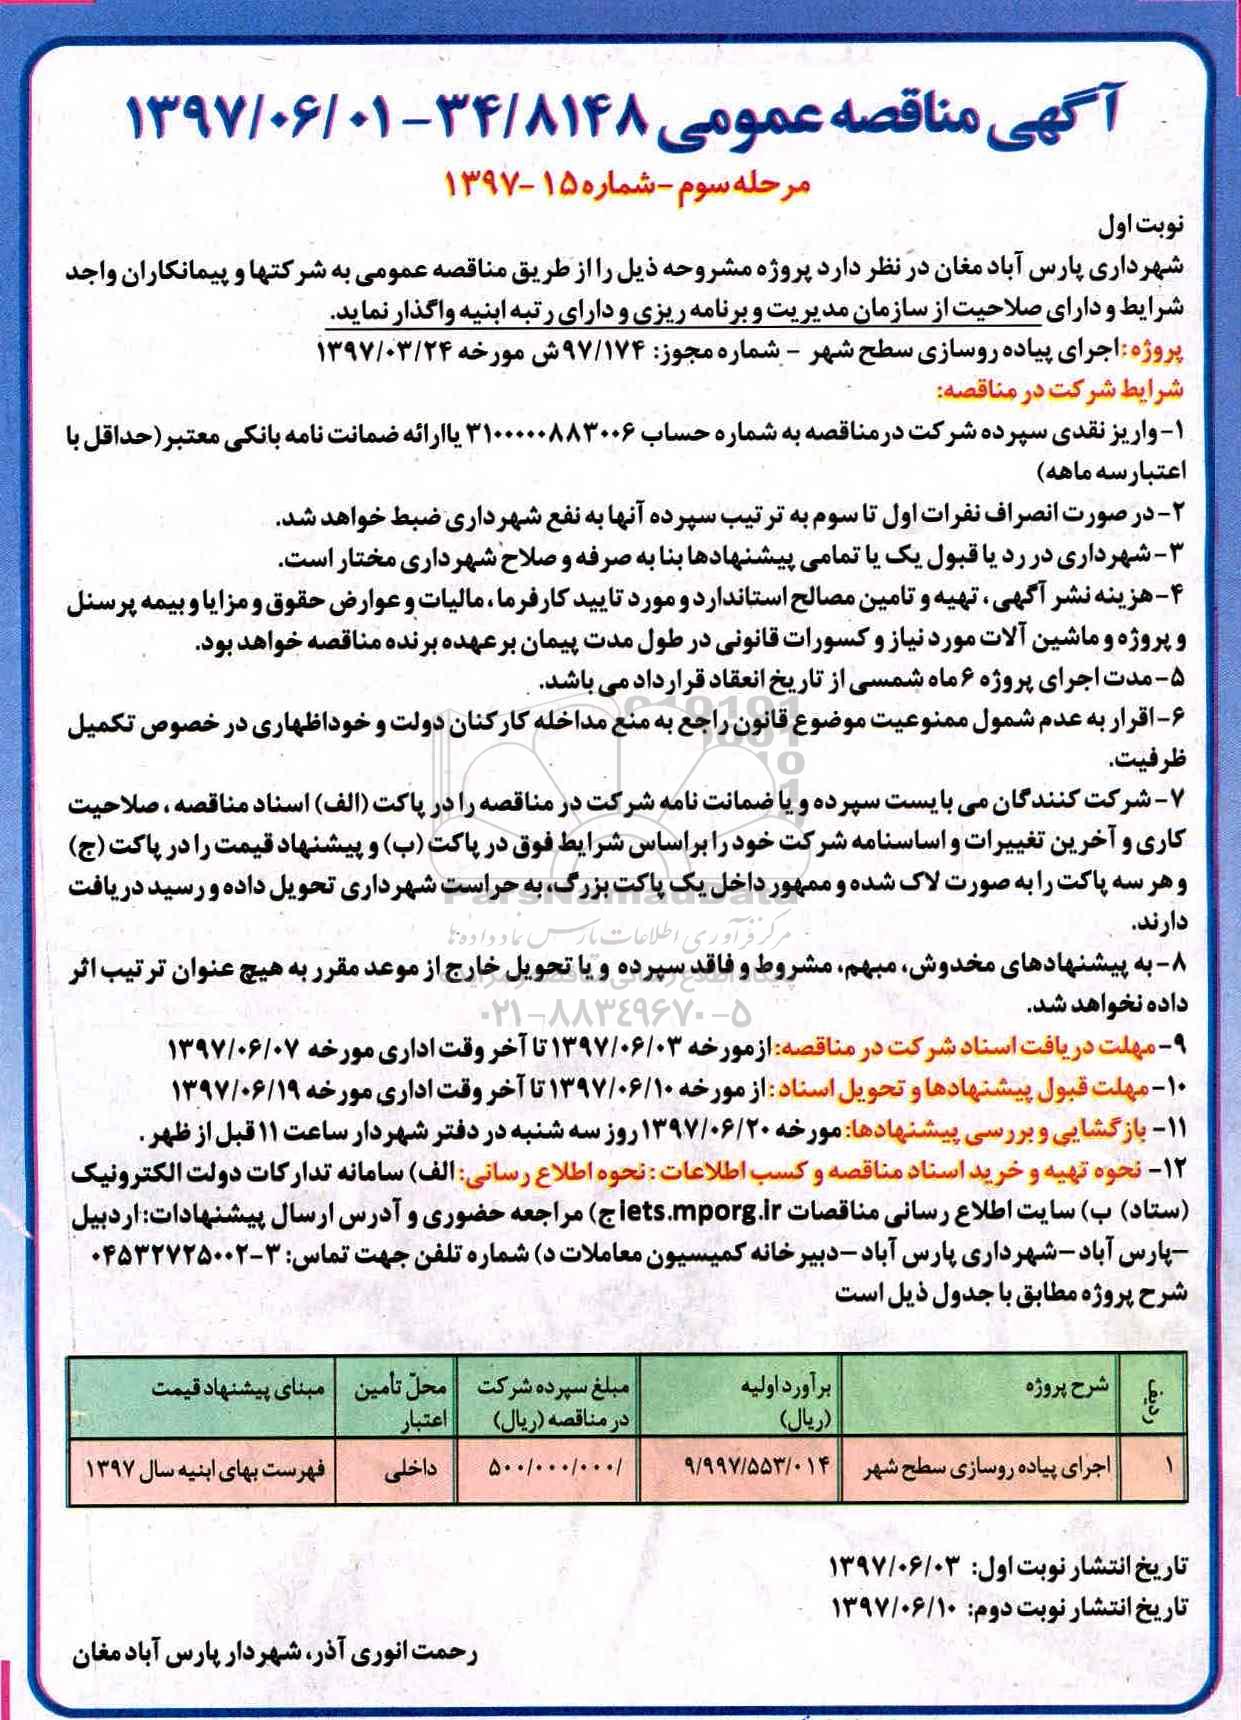 آگهی مناقصه عمومی ۳۴/۸۱۴۸ - ۱۳۹۷/۰۶/۰۱
مرحله سوم - شماره ۱۵ - ۱۳۹۷
نوبت اول
شهرداری پارس آباد مغان در نظر دارد پروژه مشروحه ذیل را از طریق مناقصه عمومی به شرکتها و پیمانکاران واجد
شرایط و دارای صلاحیت از سازمان مدیریت و برنامه ریزی و دارای رتبه ابنیه واگذار نماید.
پروژه: اجرای پیاده روسازی سطح شهر - شماره مجوز: ۹۷/۱۷۴ش مورخه ۱۳۹۷/۰۳/۲۴
شرایط شرکت در مناقصه:
۱- واریز نقدی سپرده شرکت درمناقصه به شماره حساب ۳۱۰۰۰۰۰۸۸۳۰۰۶ یاارائه ضمانت نامه بانکی معتبر(حداقل با
اعتبارسه ماهه)
۲- در صورت انصراف نفرات اول تا سوم به ترتیب سپرده آنها به نفع شهرداری ضبط خواهد شد.
۳- شهرداری در رد یا قبول یک یا تمامی پیشنهادها بنا به صرفه و صلاح شهرداری مختار است.
۴- هزینه نشر آگهی، تهیه و تامین مصالح استاندارد و مورد تایید کارفرما، مالیات و عوارض حقوق و مزایا و بیمه پرسنل
و پروژه و ماشین آلات مورد نیاز و کسورات قانونی در طول مدت پیمان برعهده برنده مناقصه خواهد بود.
۵- مدت اجرای پروژه ۶ماه شمسی از تاریخ انعقاد قرارداد می باشد.
۶- اقرار به عدم شمول ممنوعیت موضوع قانون راجع به منع مداخله کارکنان دولت و خوداظهاری در خصوص تکمیل
ظرفیت.
۷- شرکت کنندگان می بایست سپرده و یا ضمانت نامه شرکت در مناقصه را در پاکت (الف) اسناد مناقصه، صلاحیت
کاری و آخرین تغییرات و اساسنامه شرکت خود را براساس شرایط فوق در پاکت (ب) و پیشنهاد قیمت را در پاکت (ج)
و هر سه پاکت را به صورت لاک شده و ممهور داخل یک پاکت بزرگ، به حراست شهرداری تحویل داده و رسید دریافت
دارند.
ParsNamadData
مرکز فرآوری اطلاعات پارس نماد داده ها
۸- به پیشنهادهای مخدوش، مبهم، مشروط و فاقد سپرده و یا تحویل خارج از موعد مقرر به هیچ عنوان ترتیب اثر
داده نخواهد شد.
۰۲۱-۸۸۳۴۹۶۷۰-۵
۹- مهلت دریافت اسناد شرکت در مناقصه: ازمورخه ۱۳۹۷/۰۶/۰۳ تا آخر وقت اداری مورخه ۱۳۹۷/۰۶/۰۷
۱۰- مهلت قبول پیشنهادها و تحویل اسناد: از مورخه ۱۳۹۷/۰۶/۱۰ تا آخر وقت اداری مورخه ۱۳۹۷/۰۶/۱۹
۱۱- بازگشایی و بررسی پیشنهادها: مورخه ۱۳۹۷/۰۶/۲۰ روز سه شنبه در دفتر شهردار ساعت ۱۱ قبل از ظهر.
۱۲- نحوه تهیه و خرید اسناد مناقصه و کسب اطلاعات: نحوه اطلاع رسانی: الف) سامانه تدارکات دولت الکترونیک
(ستاد) ب) سایت اطلاع رسانی مناقصات iets.mporg.ir ج) مراجعه حضوری و آدرس ارسال پیشنهادات: اردبیل
-پارس آباد -شهرداری پارس آباد -دبیرخانه کمیسیون معاملات د) شماره تلفن جهت تماس: ۳-۰۴۵۳۲۷۲۵۰۰۲
شرح پروژه مطابق با جدول ذیل است
ردیف شرح پروژه برآورد اولیه (ریال) مبلغ سپرده شرکت در مناقصه (ریال) محل تأمین اعتبار مبنای پیشنهاد قیمت
۱ اجرای پیاده روسازی سطح شهر ۹/۹۹۷/۵۵۳/۰۱۴ ۵۰۰/۰۰۰/۰۰۰/ داخلی فهرست بهای ابنیه سال ۱۳۹۷
تاریخ انتشار نوبت اول: ۱۳۹۷/۰۶/۰۳
تاریخ انتشار نوبت دوم: ۱۳۹۷/۰۶/۱۰
رحمت انوری آذر، شهردار پارس آباد مغان